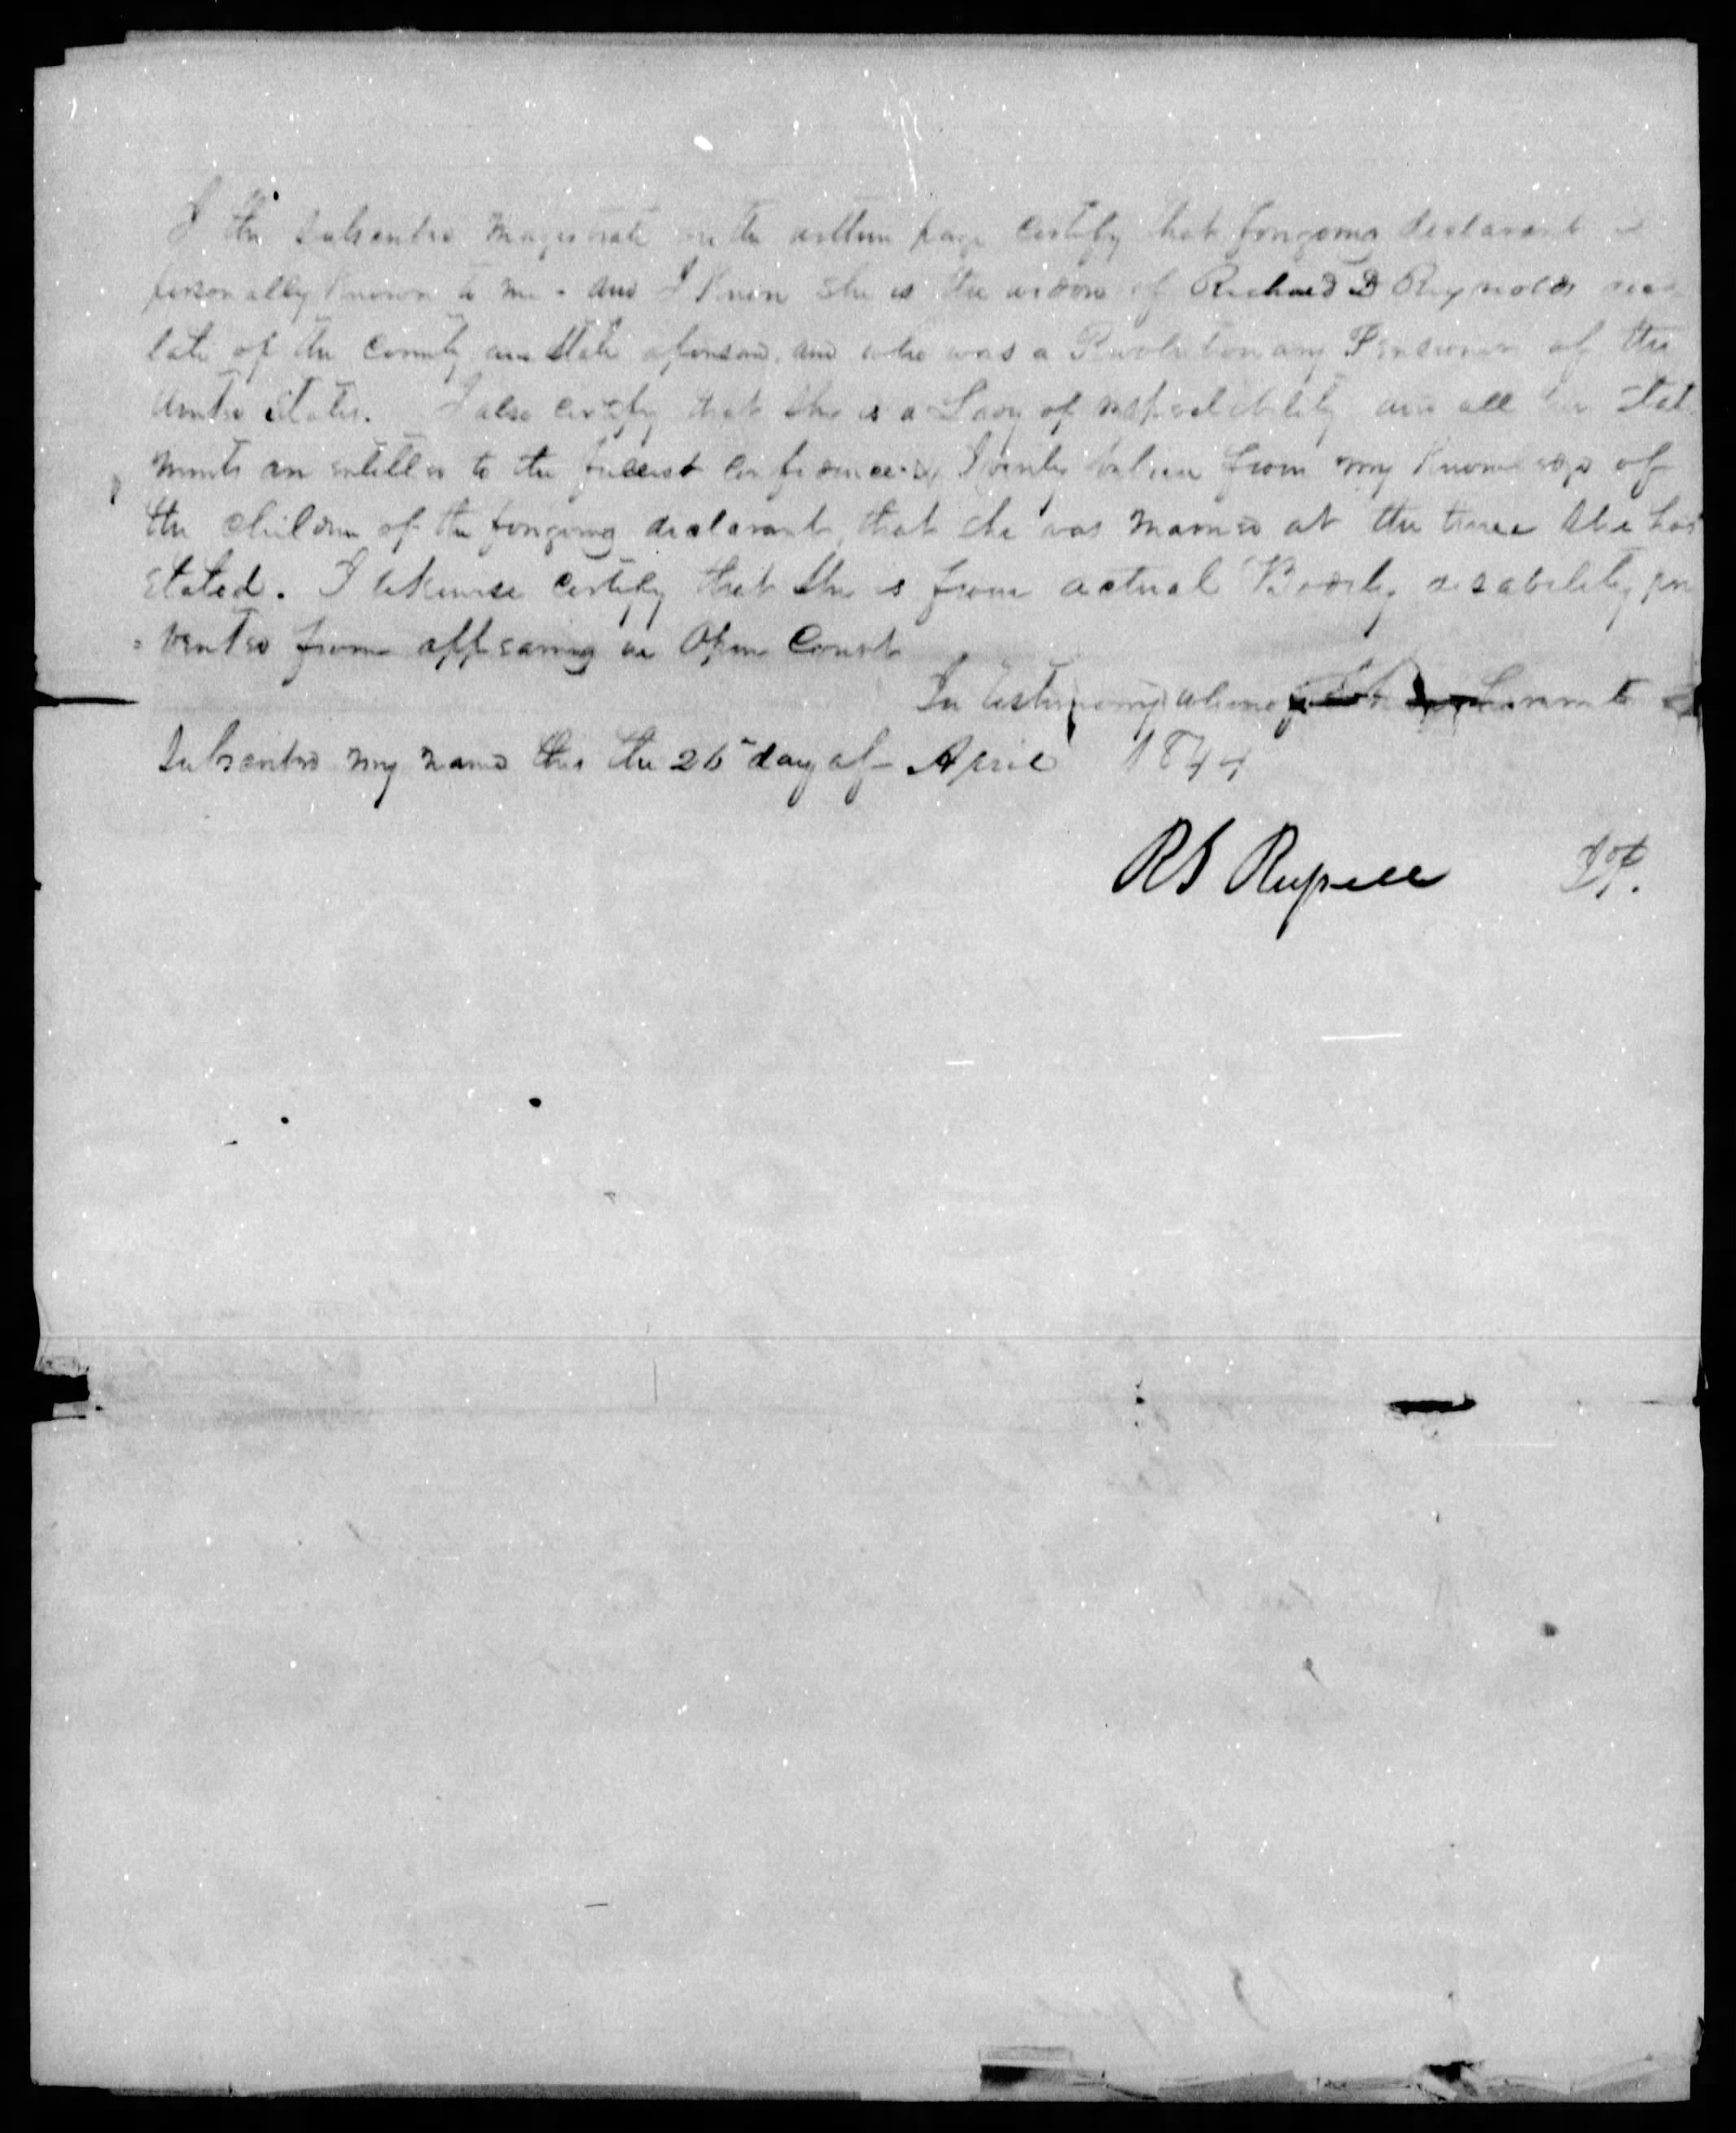 I the Subscribd Magistrate on the within page certify that forgoing declarant is
personally known to me - and I know she is the widow of Richard D Reynolds
late of the County and State aforesaid, and who was a Revolutionary Pensioner of the
United States. I also certify that she is a Lady of respectability and all her state
ments are entitled to the fullest confidence. I verily believe from my knowledge of
the children of the forgoing declarant, that she was married at the time she has
stated. I likewise certify that she is from actual Bodily disability pre
= vented from appearing in Open Court
In testimony whereof hereunto
Subscribd my name this the 26 day of April 1844
R S Russell J.P.